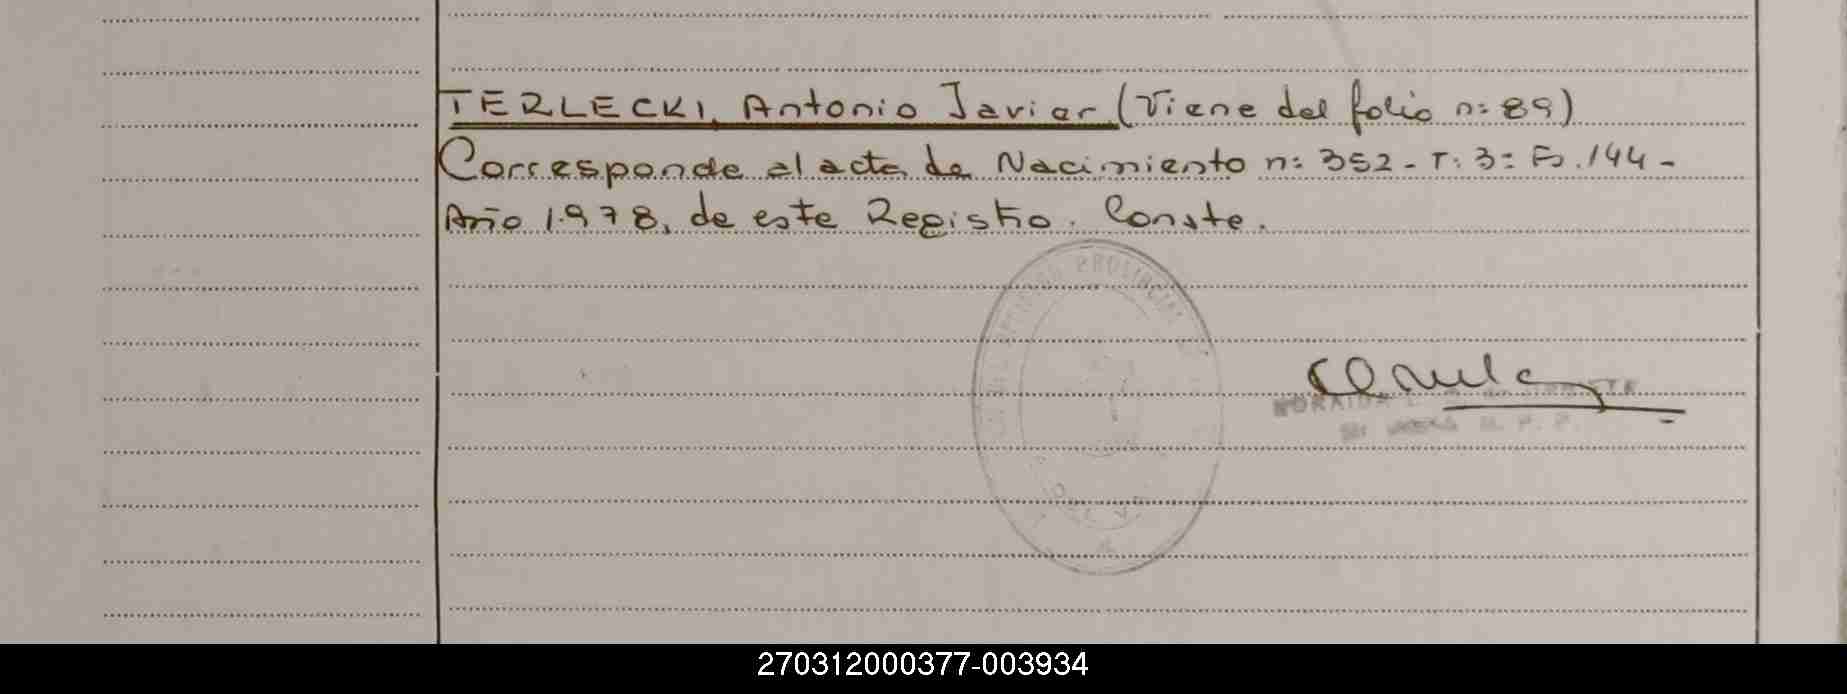 TERLECKI, Antonio Javier (Viene del folio n: 89)
Corresponde al acta de Nacimiento n: 352 - T: 3: Fo. 144 -
Año 1.978, de este Registro. Conste.
PROVINCIAL
270312000377-003934